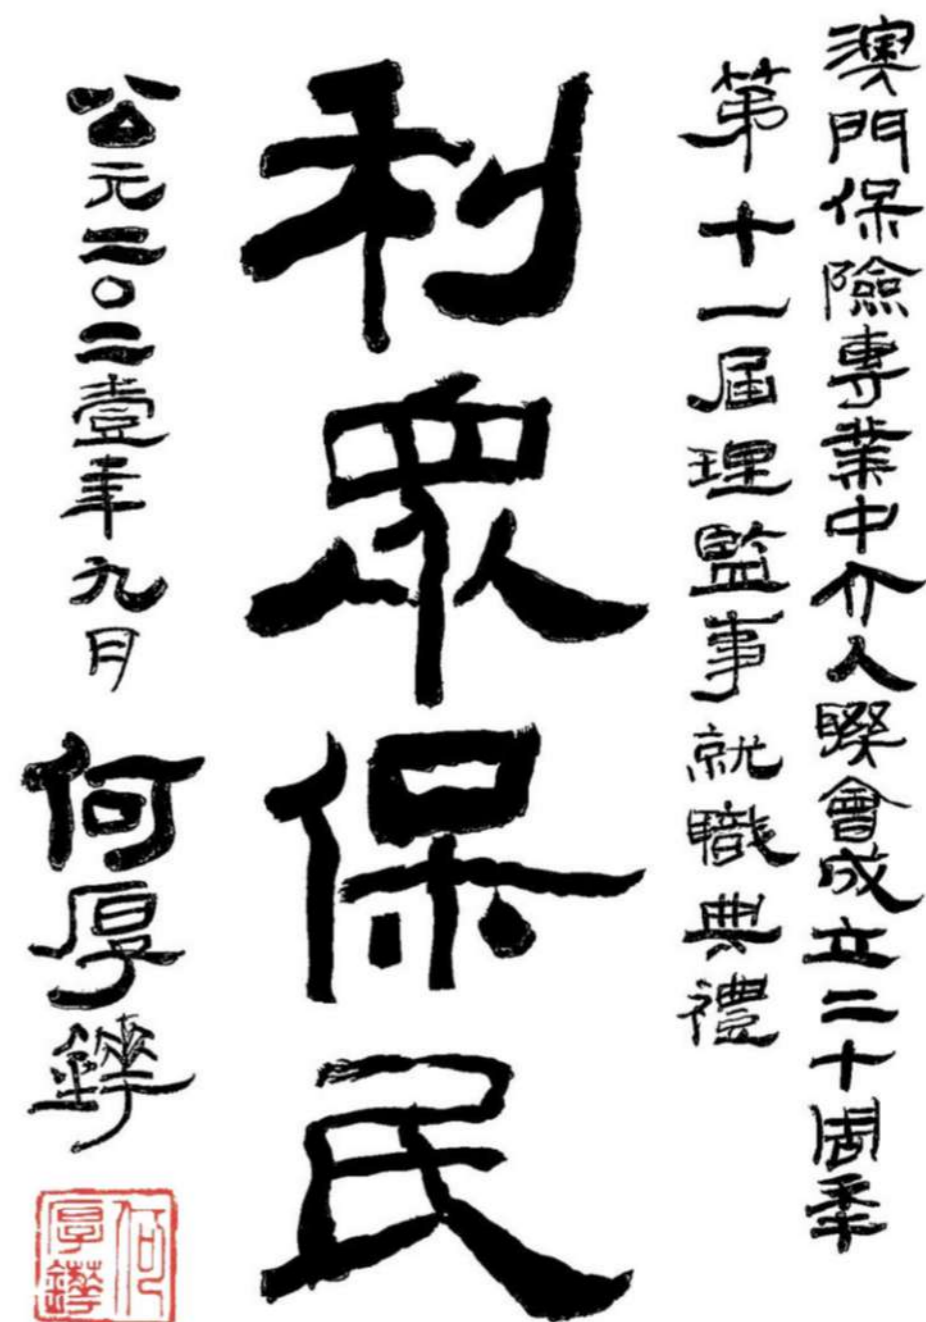 澳門保險專業中介人聯會成立二十周年
第十一届理監事就職典禮
利眾保民
公元二〇二壹年九月
何厚鏵
何厚鏵